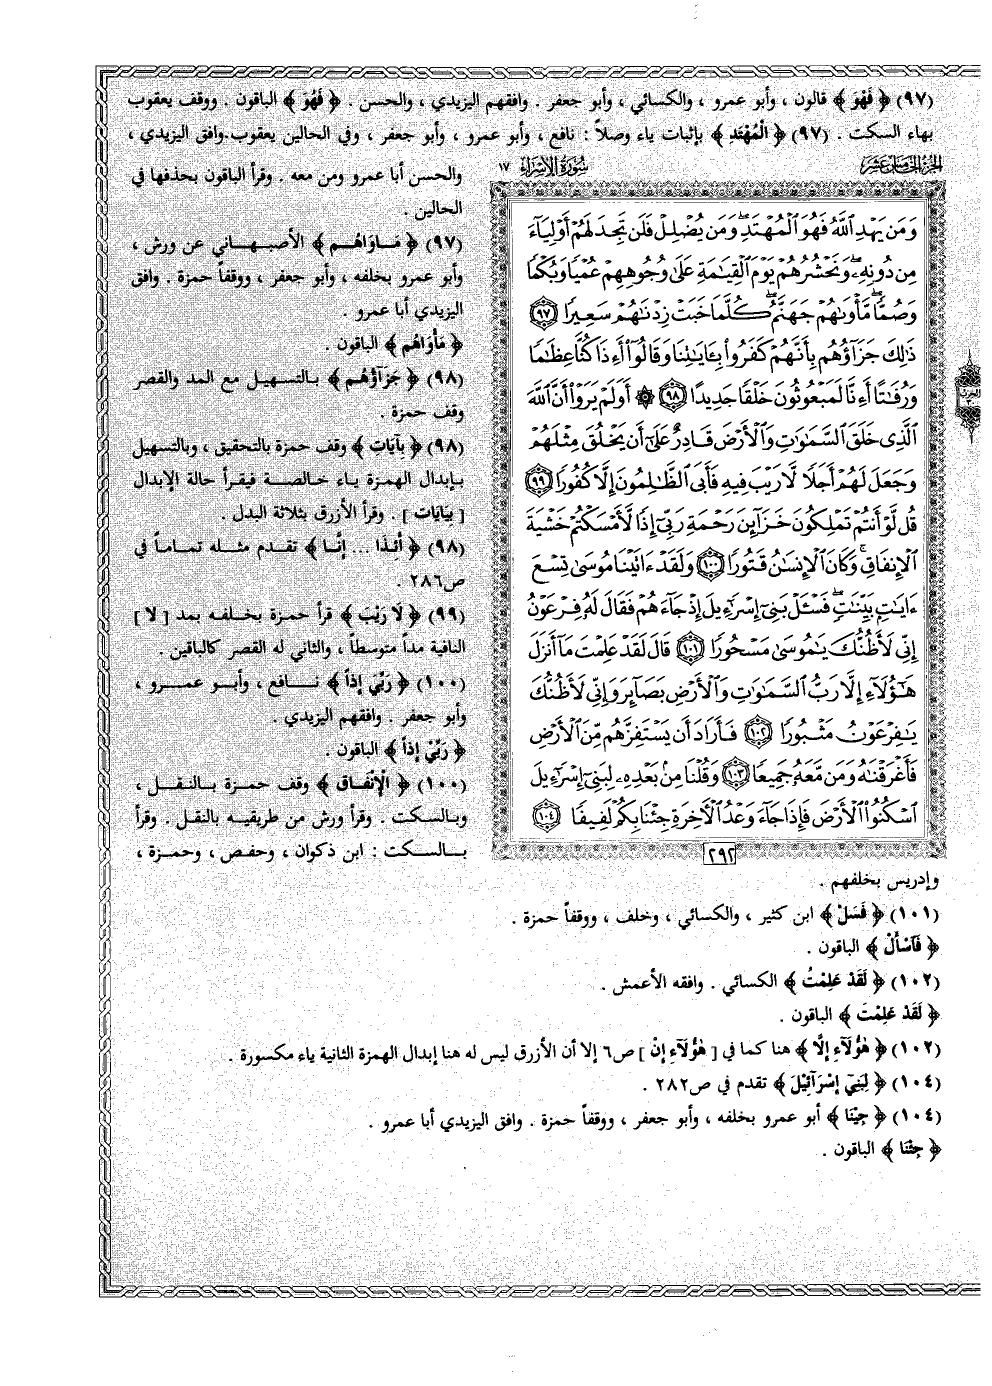 (٩٧) ﴿ فَهْوَ ﴾ قالون ، وأبو عمرو ، والكسائي ، وأبو جعفر . وافقهم اليزيدي ، والحسن . ﴿ فَهُوَ ﴾ الباقون . ووقف يعقوب
بهاء السكت . (٩٧) ﴿ الْمُهْتَدِ ﴾ بإثبات ياء وصلاً : نافع ، وأبو عمرو ، وأبو جعفر ، وفي الحالين يعقوب.وافق اليزيدي ،
والحسن أبا عمرو ومن معه . وقرأ الباقون بحذفها في
الحالين .
(٩٧) ﴿ مَـاوَاهُـم ﴾ الأصبهـاني عن ورش ،
وأبو عمرو بخلفه ، وأبو جعفر ، ووقفاً حمزة . وافق
اليزيدي أبا عمرو .
﴿ مَأْوَاهُم ﴾ الباقون .
(٩٨) ﴿ جَزَآؤُهُـم ﴾ بـالتسهيل مع المد والقصر
وقف حمزة .
(٩٨) ﴿ بآيَات ﴾ وقف حمزة بالتحقيق ، وبالتسهيل
بـإبدال الهمزة يـاء خـالصـة فيقـرأ حالة الإبدال
[ بِيَايَات ] . وقرأ الأزرق بثلاثة البدل .
(٩٨) ﴿ أَئِذَا ... إِنَّـا ﴾ تقدم مثـله تمـامـاً في
ص٢٨٦ .
(٩٩) ﴿ لَا رَيْبَ ﴾ قرأ حمزة بخلفـه بمد [ لا ]
النافية مداً متوسطاً ، والثاني له القصر كالباقين .
(١٠٠) ﴿ رَبِّيَ إِذاً ﴾ نـافع ، وأبـو عمـرو ،
وأبو جعفر . وافقهم اليزيدي .
﴿ رَبِّيْ إِذاً ﴾ الباقون .
(١٠٠) ﴿ الْإِنْفَـاق ﴾ وقف حمـزة بـالنقـل ،
وبـالسكت . وقرأ ورش من طريقيـه بالنقل . وقرأ
بـالسكت : ابن ذكوان ، وحفص ، وحمزة ،
الجزء الخامس عشر
سُورَةُ الإِسْرَاءِ ١٧
وَمَن يَهْدِ ٱللَّهُ فَهُوَ ٱلْمُهْتَدِۖ وَمَن يُضْلِلْ فَلَن تَجِدَ لَهُمْ أَوْلِيَآءَ
مِن دُونِهِۦۖ وَنَحْشُرُهُمْ يَوْمَ ٱلْقِيَٰمَةِ عَلَىٰ وُجُوهِهِمْ عُمْيًا وَبُكْمًا
وَصُمًّاۖ مَّأْوَىٰهُمْ جَهَنَّمُۖ كُلَّمَا خَبَتْ زِدْنَٰهُمْ سَعِيرًا ٩٧
ذَٰلِكَ جَزَآؤُهُم بِأَنَّهُمْ كَفَرُوا۟ بِـَٔايَٰتِنَا وَقَالُوٓا۟ أَءِذَا كُنَّا عِظَٰمًا
وَرُفَٰتًا أَءِنَّا لَمَبْعُوثُونَ خَلْقًا جَدِيدًا ٩٨ ۞ أَوَلَمْ يَرَوْا۟ أَنَّ ٱللَّهَ
ٱلَّذِى خَلَقَ ٱلسَّمَٰوَٰتِ وَٱلْأَرْضَ قَادِرٌ عَلَىٰٓ أَن يَخْلُقَ مِثْلَهُمْ
وَجَعَلَ لَهُمْ أَجَلًا لَّا رَيْبَ فِيهِ فَأَبَى ٱلظَّٰلِمُونَ إِلَّا كُفُورًا ٩٩
قُل لَّوْ أَنتُمْ تَمْلِكُونَ خَزَآئِنَ رَحْمَةِ رَبِّىٓ إِذًا لَّأَمْسَكْتُمْ خَشْيَةَ
ٱلْإِنفَاقِۚ وَكَانَ ٱلْإِنسَٰنُ قَتُورًا ١٠٠ وَلَقَدْ ءَاتَيْنَا مُوسَىٰ تِسْعَ
ءَايَٰتٍۭ بَيِّنَٰتٍۖ فَسْـَٔلْ بَنِىٓ إِسْرَٰٓءِيلَ إِذْ جَآءَهُمْ فَقَالَ لَهُۥ فِرْعَوْنُ
إِنِّى لَأَظُنُّكَ يَٰمُوسَىٰ مَسْحُورًا ١٠١ قَالَ لَقَدْ عَلِمْتَ مَآ أَنزَلَ
هَٰٓؤُلَآءِ إِلَّا رَبُّ ٱلسَّمَٰوَٰتِ وَٱلْأَرْضِ بَصَآئِرَ وَإِنِّى لَأَظُنُّكَ
يَٰفِرْعَوْنُ مَثْبُورًا ١٠٢ فَأَرَادَ أَن يَسْتَفِزَّهُم مِّنَ ٱلْأَرْضِ
فَأَغْرَقْنَٰهُ وَمَن مَّعَهُۥ جَمِيعًا ١٠٣ وَقُلْنَا مِنۢ بَعْدِهِۦ لِبَنِىٓ إِسْرَٰٓءِيلَ
ٱسْكُنُوا۟ ٱلْأَرْضَ فَإِذَا جَآءَ وَعْدُ ٱلْءَاخِرَةِ جِئْنَا بِكُمْ لَفِيفًا ١٠٤
٢٩٢
وإدريس بخلفهم .
(١٠١) ﴿ فَسَلْ ﴾ ابن كثير ، والكسائي ، وخلف ، ووقفاً حمزة .
﴿ فَاسْأَلْ ﴾ الباقون .
(١٠٢) ﴿ لَقَدْ عَلِمْتُ ﴾ الكسائي . وافقه الأعمش .
﴿ لَقَدْ عَلِمْتَ ﴾ الباقون .
(١٠٢) ﴿ هَٰؤُلَآءِ إِلَّا ﴾ هنا كما في [ هَٰؤُلَآءِ إِنْ ] ص٦ إلا أن الأزرق ليس له هنا إبدال الهمزة الثانية ياء مكسورة .
(١٠٤) ﴿ لِبَنِيٓ إِسْرَآئِيلَ ﴾ تقدم في ص٢٨٢ .
(١٠٤) ﴿ جِيْنَا ﴾ أبو عمرو بخلفه ، وأبو جعفر ، ووقفاً حمزة . وافق اليزيدي أبا عمرو .
﴿ جِئْنَا ﴾ الباقون .